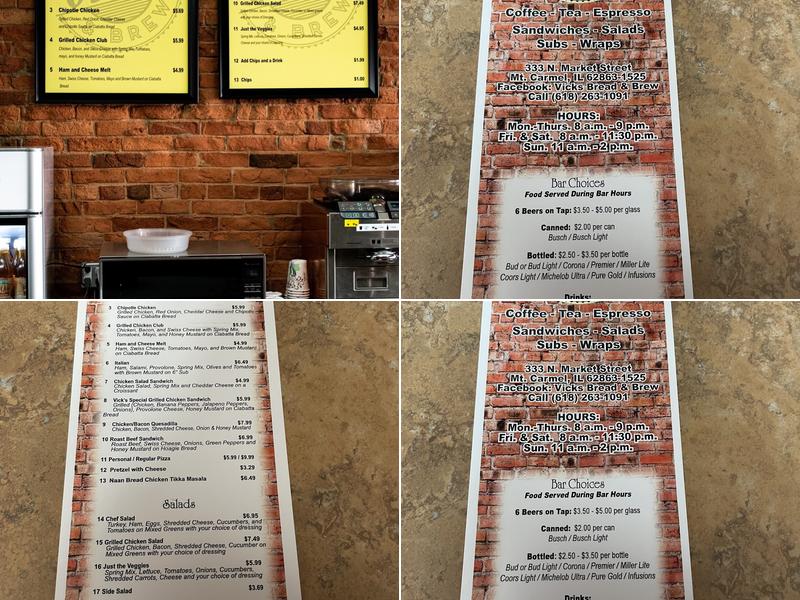 3 Chipotle Chicken $5.99
Grilled Chicken, Red Onion, Cheddar Cheese
and Chipotle Sauce on Ciabatta Bread
4 Grilled Chicken Club $5.99
Chicken, Bacon, and Swiss Cheese with Spring Mix, Tomatoes,
mayo, and honey Mustard on Ciabatta Bread
5 Ham and Cheese Melt $4.99
Ham, Swiss Cheese, Tomatoes, Mayo and Brown Mustard on Ciabatta
Bread
BREW
10 Grilled Chicken Salad $7.49
with your choice of dressing
11 Just the Veggies $4.95
Cheese and your choice of dressing
12 Add Chips and a Drink $1.99
13 Chips $1.00
Coffee - Tea - Espresso
Sandwiches - Salads
Subs - Wraps
333 N. Market Street
Mt. Carmel, IL 62863-1525
Facebook: Vicks Bread & Brew
Call (618) 263-1091
HOURS:
Mon.-Thurs. 8 a.m. - 9 p.m.
Fri. & Sat. 8 a.m. - 11:30 p.m.
Sun. 11 a.m. - 2 p.m.
Bar Choices
Food Served During Bar Hours
6 Beers on Tap: $3.50 - $5.00 per glass
Canned: $2.00 per can
Busch / Busch Light
Bottled: $2.50 - $3.50 per bottle
Bud or Bud Light / Corona / Premier / Miller Lite
Coors Light / Michelob Ultra / Pure Gold / Infusions
Drinks:
3 Chipotle Chicken $5.99
Grilled Chicken, Red Onion, Cheddar Cheese and Chipotle
Sauce on Ciabatta Bread
4 Grilled Chicken Club $5.99
Chicken, Bacon, and Swiss Cheese with Spring Mix
Tomatoes, Mayo, and Honey Mustard on Ciabatta Bread
5 Ham and Cheese Melt $4.99
Ham, Swiss Cheese, Tomatoes, Mayo, and Brown Mustard
on Ciabatta Bread
6 Italian $6.49
Ham, Salami, Provolone, Spring Mix, Olives and Tomatoes
with Brown Mustard on 6" Sub
7 Chicken Salad Sandwich $4.99
Chicken Salad, Spring Mix and Cheddar Cheese on a
Croissant
8 Vick's Special Grilled Chicken Sandwich $5.99
Grilled (Chicken, Banana Peppers, Jalapeno Peppers,
Onions), Provolone Cheese, Honey Mustard on Ciabatta
Bread
9 Chicken/Bacon Quesadilla $7.99
Chicken, Bacon, Shredded Cheese, Onion & Honey Mustard
10 Roast Beef Sandwich $6.99
Roast Beef, Swiss Cheese, Onions, Green Peppers and
Honey Mustard on Hoagie Bread
11 Personal / Regular Pizza $5.99 / $9.99
12 Pretzel with Cheese $3.29
13 Naan Bread Chicken Tikka Masala $6.49
Salads
14 Chef Salad $6.95
Turkey, Ham, Eggs, Shredded Cheese, Cucumbers, and
Tomatoes on Mixed Greens with your choice of dressing
15 Grilled Chicken Salad $7.49
Grilled Chicken, Bacon, Shredded Cheese, Cucumber on
Mixed Greens with your choice of dressing
16 Just the Veggies $5.99
Spring Mix, Lettuce, Tomatoes, Onions, Cucumbers,
Shredded Carrots, Cheese and your choice of dressing
17 Side Salad $3.69
Coffee - Tea - Espresso
Sandwiches - Salads
Subs - Wraps
333 N. Market Street
Mt. Carmel, IL 62863-1525
Facebook: Vicks Bread & Brew
Call (618) 263-1091
HOURS:
Mon.-Thurs. 8 a.m. - 9 p.m.
Fri. & Sat. 8 a.m. - 11:30 p.m.
Sun. 11 a.m. - 2 p.m.
Bar Choices
Food Served During Bar Hours
6 Beers on Tap: $3.50 - $5.00 per glass
Canned: $2.00 per can
Busch / Busch Light
Bottled: $2.50 - $3.50 per bottle
Bud or Bud Light / Corona / Premier / Miller Lite
Coors Light / Michelob Ultra / Pure Gold / Infusions
Drinks: